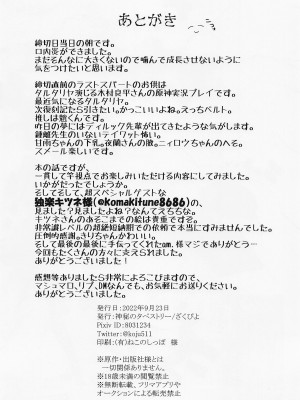 あとがき
締切日当日の朝です。
口内炎ができました。
まだそんなに大きくないので噛んで成長させないように
気をつけたいと思います。
締切直前のラストスパートのお供は
タルタリヤ演じる木村良平さんの原神実況プレイです。
最近気になるタルタリヤ。
次復刻したら引きたい。かっこいいよね。えっちベルト。
推しは魈くんです。
昨日の夢にはディルック先輩が出てきたような気がします。
鍾離先生のいないテイワット怖い。
甘雨ちゃんの下乳。夜蘭さんの腋。ニィロウちゃんのヘそ。
スメール楽しいです。
本の話ですが、
一貫して竿視点でお楽しみいただける内容にしてみました。
いかがだったでしょうか。
そしてそして、超スペシャルゲストな
独楽キツネ様(@komakitune8686)の、
見ました？見ましたよね？なんてえちちな。
キツネさんのあるこまでの絵は貴重ですぞ。
非常識レベルの超絶短納期での依頼で本当にすみませんでした。
圧倒的感謝。きりちゃんかわいい。
そして最後の最後に手伝ってくれたam.様マジでありがとう…
今回もたくさんの方々に支えられました。
ありがとうございました！
感想等ありましたら非常によろこびますので、
マシュマロ、リプ、DMなんでも、お気軽にお送りください。
ありがとうございました。
発行日：2022年9月23日
発行：神秘のタペストリー/ざくぴよ
Pixiv ID：8031234
Twitter：@koju511
印刷：(有)ねこのしっぽ 様
※原作・出版社様とは
一切関係ありません。
※18歳未満の閲覧禁止
※無断転載、フリマアプリや
オークションによる転売禁止